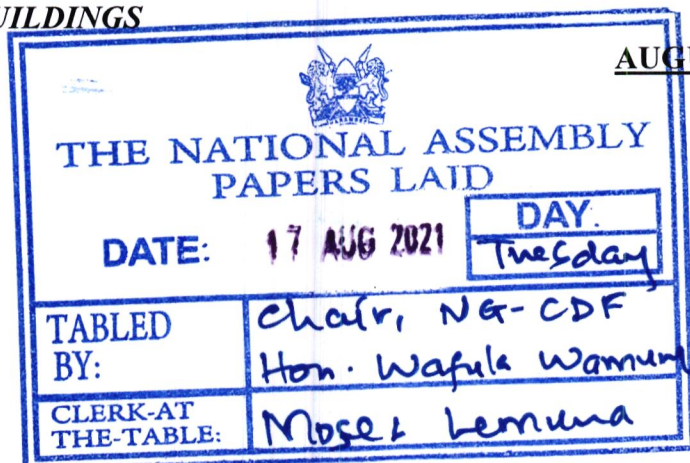 UILDINGS
AUGU
THE NATIONAL ASSEMBLY
PAPERS LAID
DATE: 17 AUG 2021
DAY.
Tuesday
TABLED BY:
Chair, NG-CDF
Hon. Wafula Wamun
CLERK-AT THE-TABLE:
Moses Lemuna